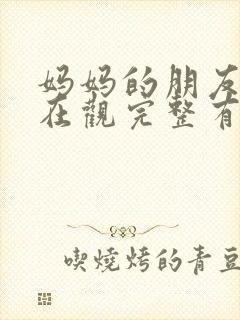 妈妈的朋友
在觀完整有
喫燒烤的青豆